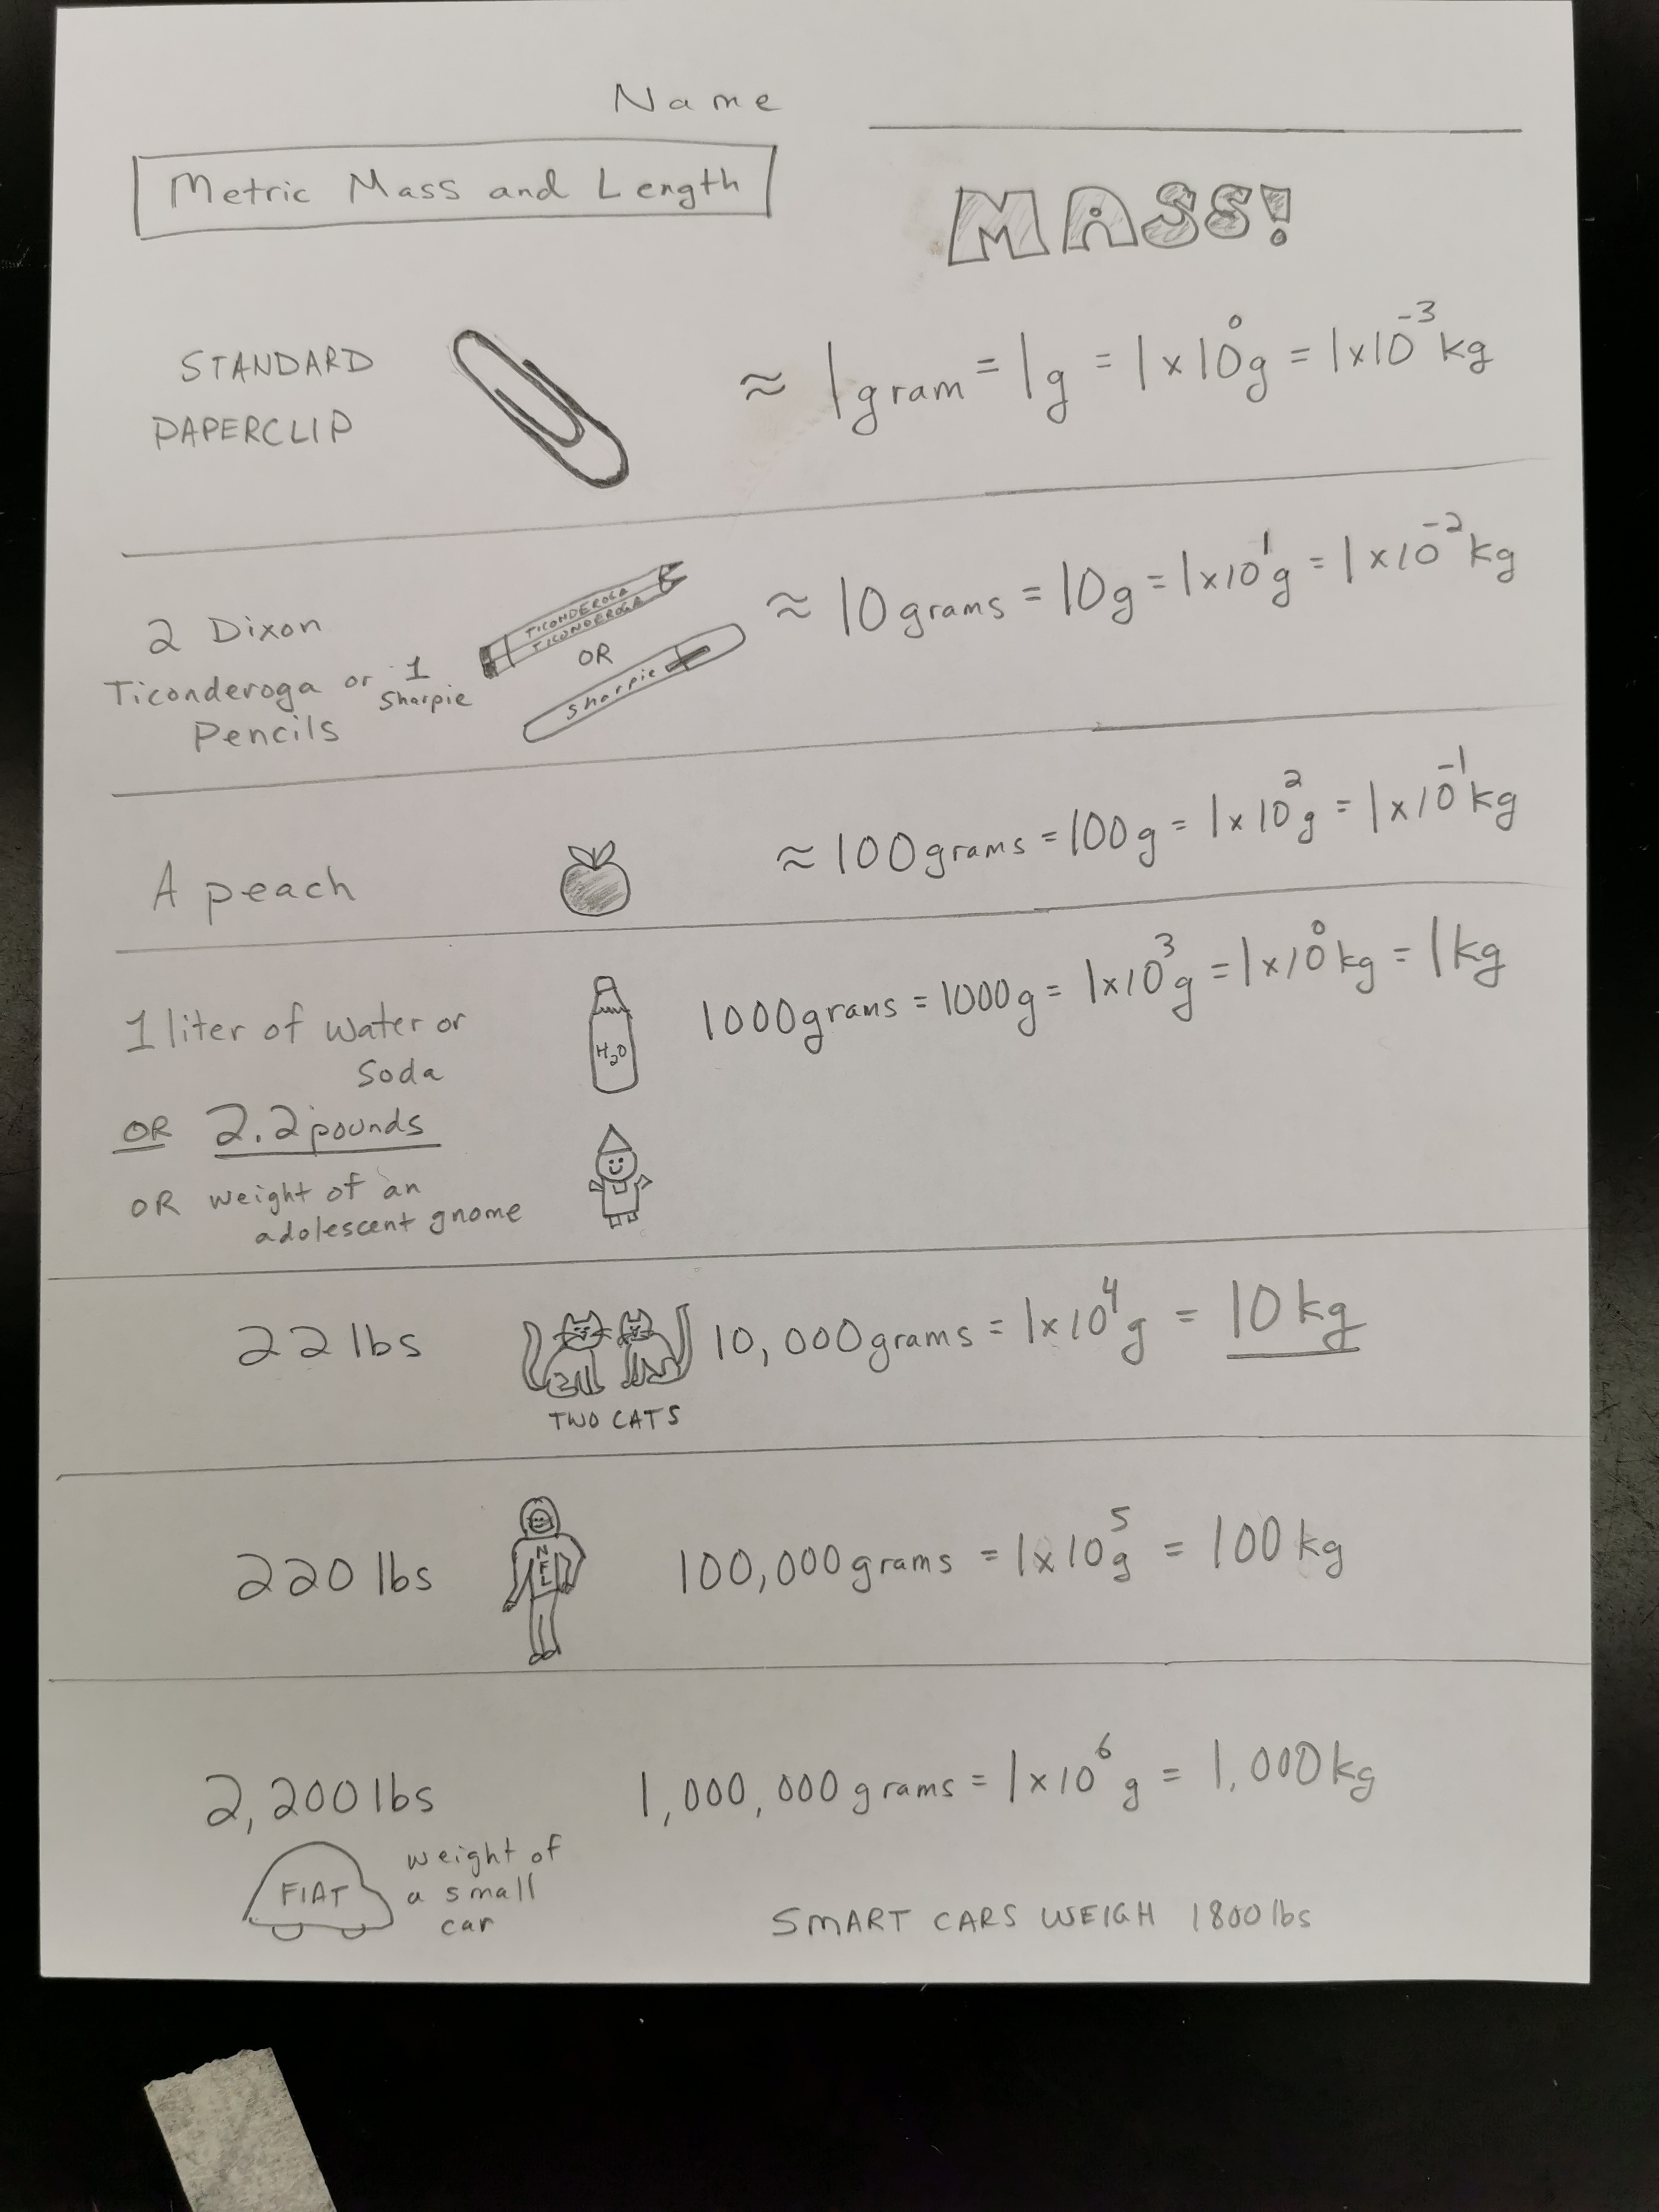 Name
Metric Mass and Length
MASS!
STANDARD
PAPERCLIP
≈ 1 gram = 1g = 1x10⁰g = 1x10⁻³kg
2 Dixon
Ticonderoga or 1 Sharpie
Pencils
TICONDEROGA
TICONDEROGA
OR
Sharpie
≈ 10 grams = 10g = 1x10¹g = 1x10⁻²kg
A peach
≈ 100 grams = 100g = 1x10²g = 1x10⁻¹kg
1 liter of water or
Soda
OR 2.2 pounds
OR weight of an
adolescent gnome
H₂O
1000 grams = 1000g = 1x10³g = 1x10⁰kg = 1kg
22 lbs
TWO CATS
10,000 grams = 1x10⁴g = 10 kg
220 lbs
NEL
100,000 grams = 1x10⁵g = 100 kg
2,200 lbs
1,000,000 grams = 1x10⁶g = 1,000 kg
FIAT
weight of
a small
car
SMART CARS WEIGH 1800 lbs